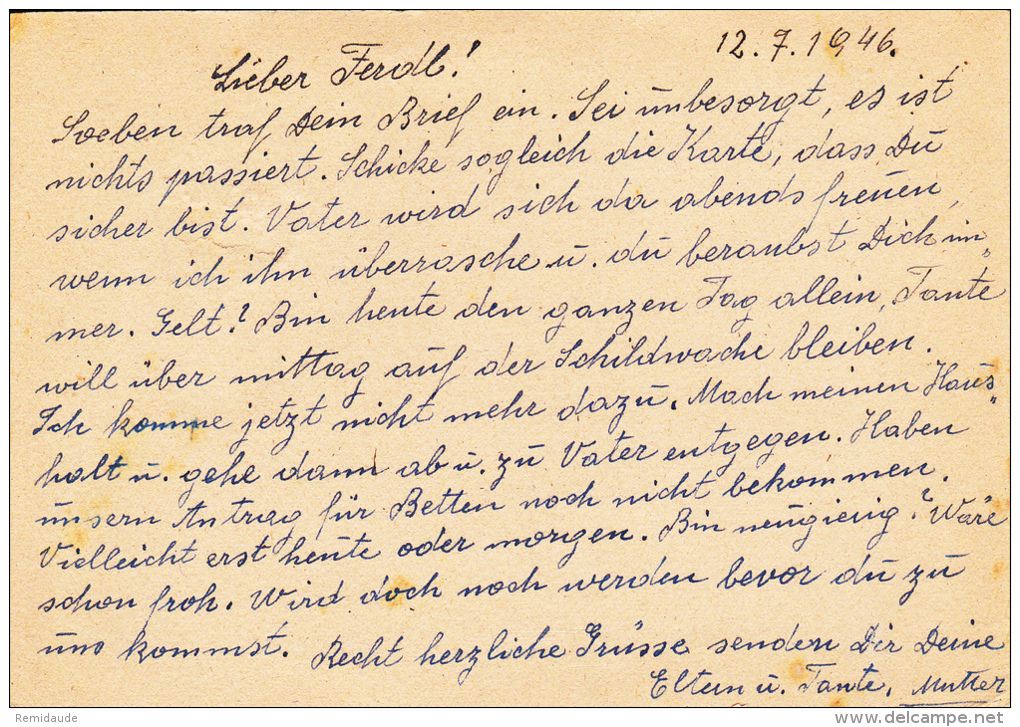 12.7.1946.
Lieber Ferdl!
Soeben traf Dein Brief ein. Sei unbesorgt, es ist
nichts passiert. Schicke sogleich die Karte, dass Du
sicher bist. Vater wird sich da abends freuen,
wenn ich ihn überrasche u. du beraubst Dich im„
mer. Gelt? Bin heute den ganzen Tag allein, Tante
will über mittag auf der Schildwache bleiben.
Ich komme jetzt nicht mehr dazu. Mach meinen Haus„
halt u. gehe dann ab u. zu Vater entgegen. Haben
unsern Antrag für Betten noch nicht bekommen.
Vielleicht erst heute oder morgen. Bin neugierig? Wäre
schon froh. Wird doch noch werden bevor du zu
uns kommst. Recht herzliche Grüsse senden Dir Deine
Eltern u. Tante. Mutter
Remidaude
www.delcampe.net